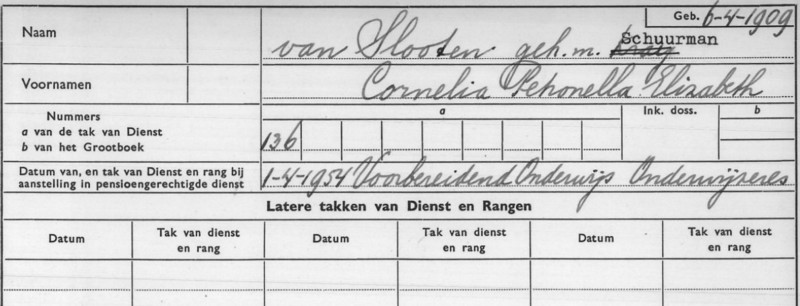 Geb. 6-4-1909
Naam
Schuurman
van Slooten geh. m.
Voornamen
Cornelia Petronella Elizabeth
Nummers
a van de tak van Dienst
b van het Grootboek
a
Ink. doss.
b
136
Datum van, en tak van Dienst en rang bij
aanstelling in pensioengerechtigde dienst
1-4-1954 Voorbereidend Onderwijs Onderwijzeres
Latere takken van Dienst en Rangen
Datum
Tak van dienst
en rang
Datum
Tak van dienst
en rang
Datum
Tak van dienst
en rang